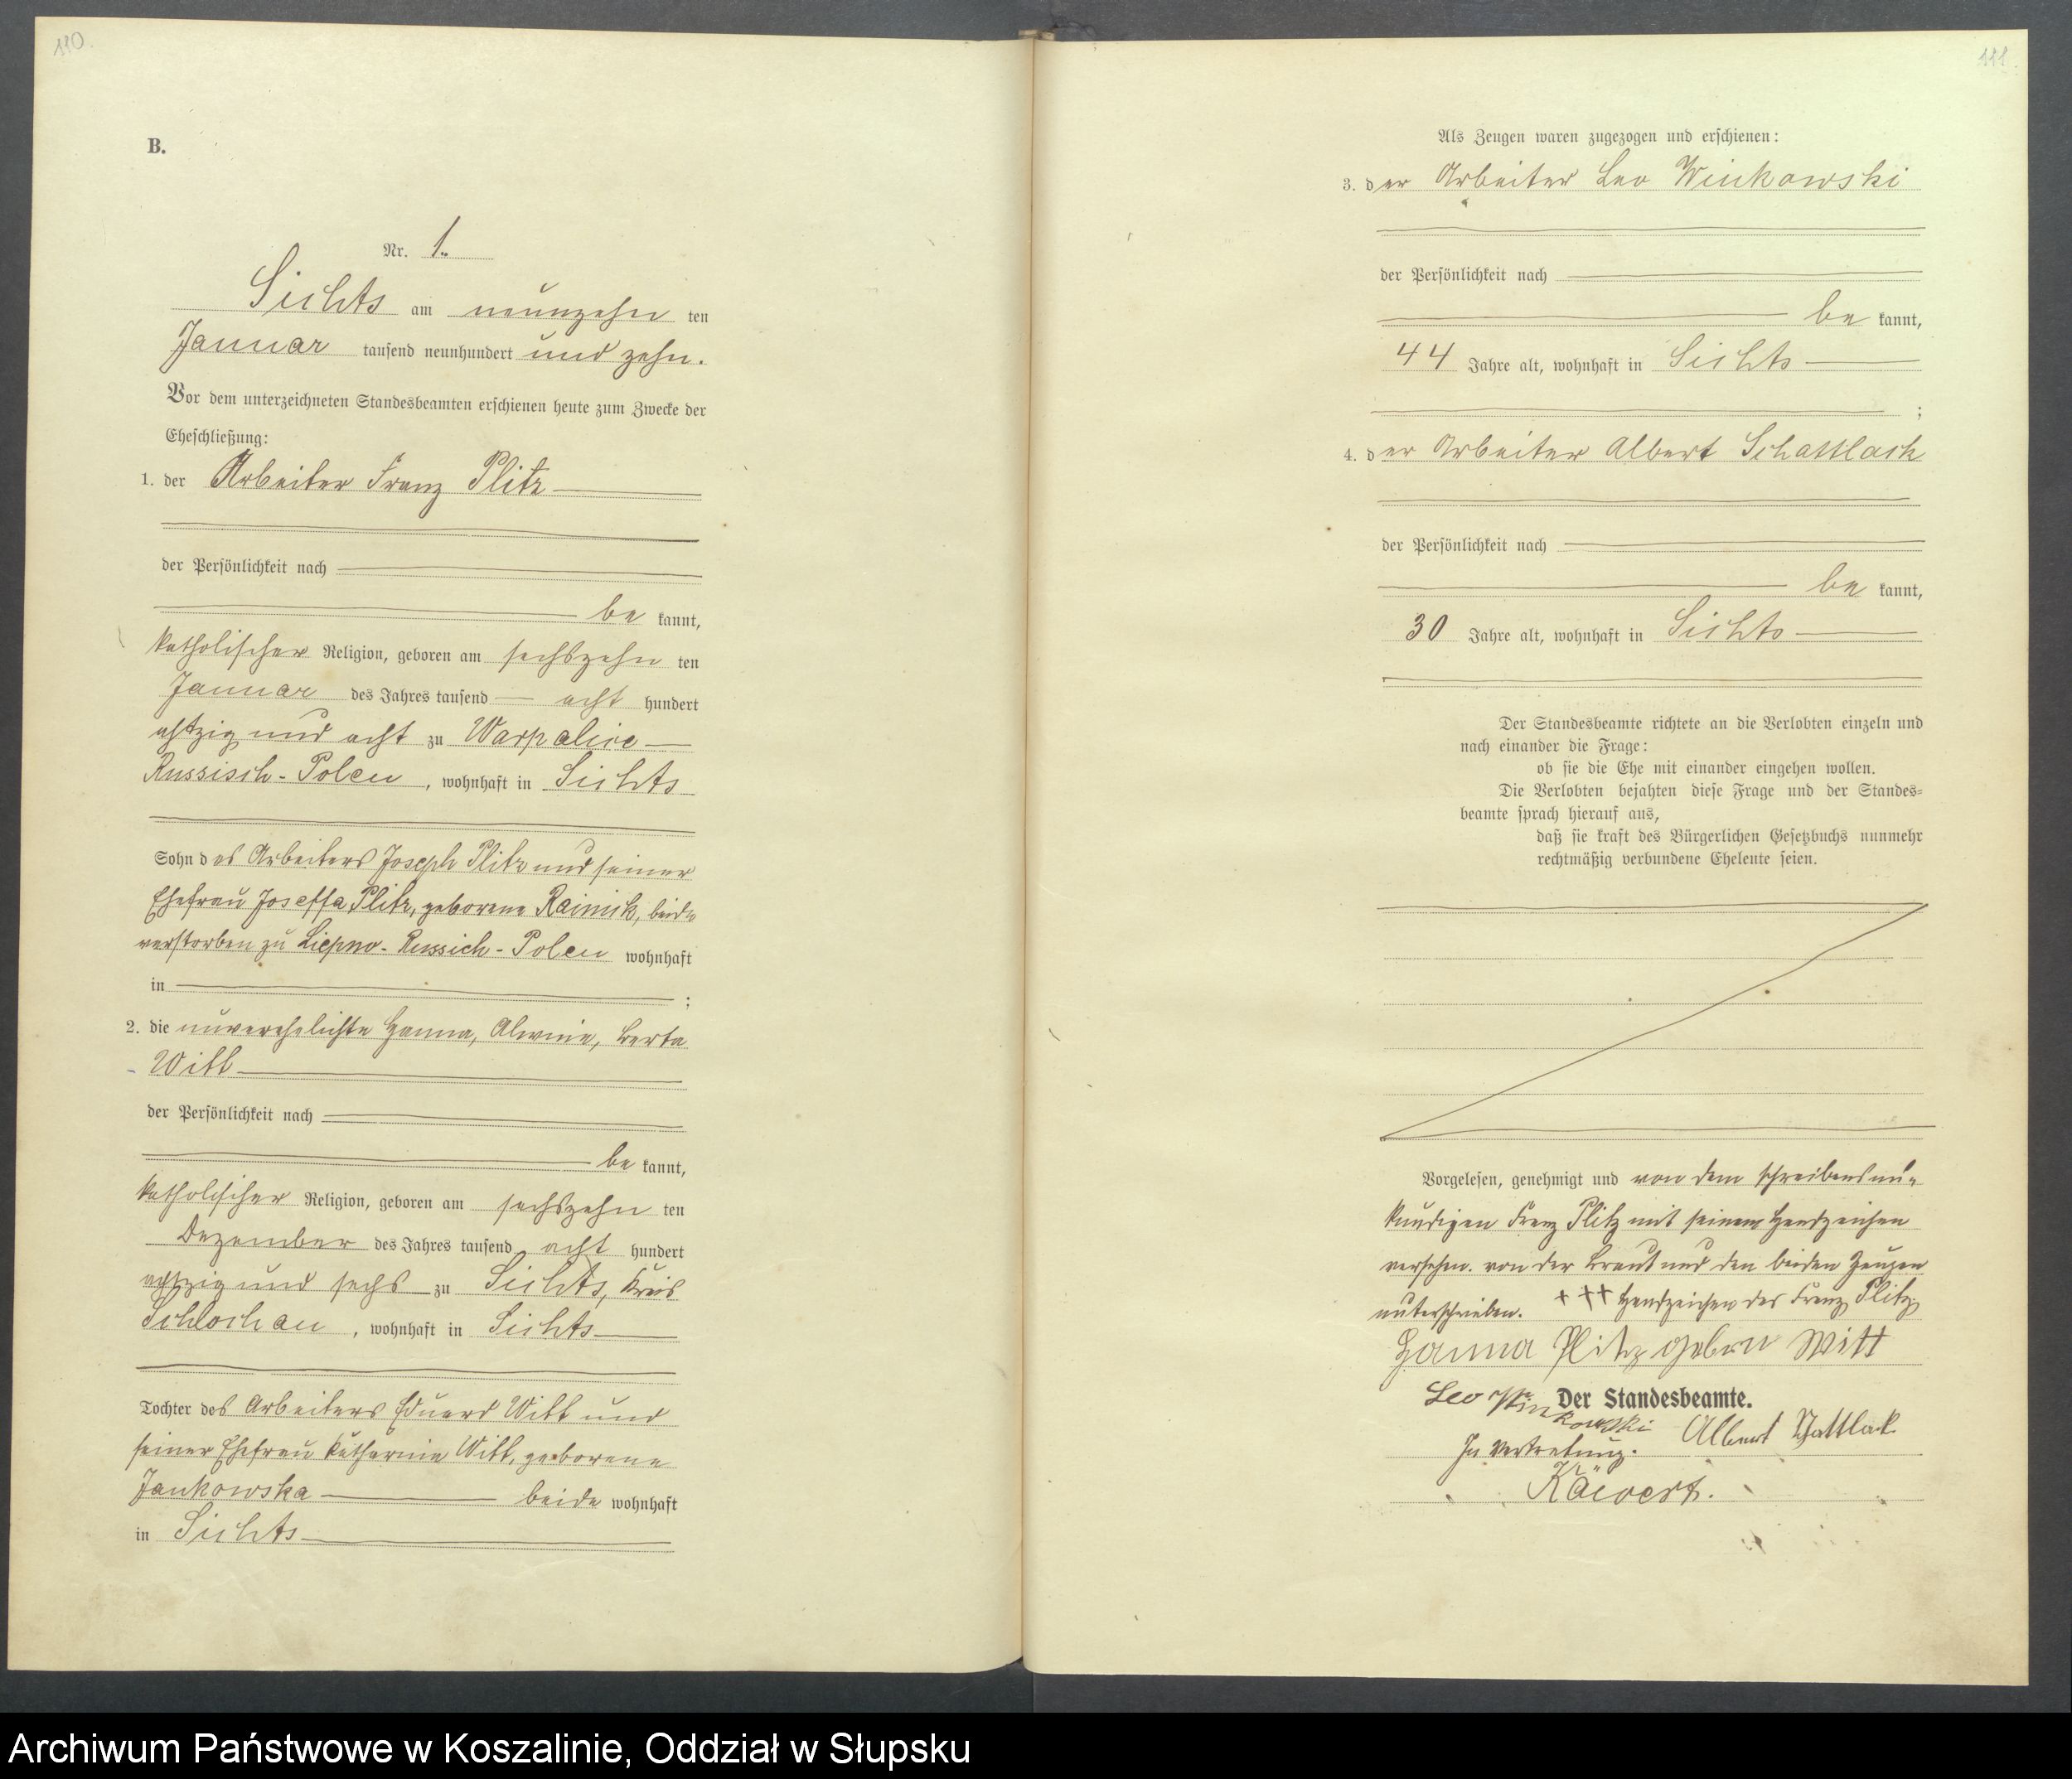 110.
B.
Nr. 1.
Sichts am neunzehn ten
Januar tausend neunhundert und zehn.
Vor dem unterzeichneten Standesbeamten erschienen heute zum Zwecke der
Eheschließung:
1. der Arbeiter Franz Plitz
der Persönlichkeit nach
be kannt,
katholischer Religion, geboren am sechszehn ten
Januar des Jahres tausend acht hundert
achtzig und acht zu Warpalice
Russisch-Polen, wohnhaft in Sichts
Sohn des Arbeiters Joseph Plitz und seiner
Ehefrau Joseffa Plitz, geborene Rainik, beide
verstorben zu Liepno-Russich-Polen wohnhaft
in ;
2. die unverehelichte Hanna, Alwine, Berta
Witt
der Persönlichkeit nach
be kannt,
katholischer Religion, geboren am sechszehn ten
Dezember des Jahres tausend acht hundert
achtzig und sechs zu Sichts, Kreis
Schlochau, wohnhaft in Sichts
Tochter des Arbeiters Eduard Witt und
seiner Ehefrau Katharine Witt, geborene
Jankowska beide wohnhaft
in Sichts
111.
Als Zeugen waren zugezogen und erschienen:
3. der Arbeiter Leo Winkowski
der Persönlichkeit nach
be kannt,
44 Jahre alt, wohnhaft in Sichts
;
4. der Arbeiter Albert Schattlack
der Persönlichkeit nach
be kannt,
30 Jahre alt, wohnhaft in Sichts
Der Standesbeamte richtete an die Verlobten einzeln und
nach einander die Frage:
ob sie die Ehe mit einander eingehen wollen.
Die Verlobten bejahten diese Frage und der Standes-
beamte sprach hierauf aus,
daß sie kraft des Bürgerlichen Gesetzbuchs nunmehr
rechtmäßig verbundene Eheleute seien.
Vorgelesen, genehmigt und von dem schreibensun-
kundigen Franz Plitz mit seinem Handzeichen
versehen. von der Braut und den beiden Zeugen
unterschrieben. +++ Handzeichen des Franz Plitz
Hanna Plitz geben Witt
Leo Winkowski Der Standesbeamte.
In Vertretung. Albert
Archiwum Państwowe w Koszalinie, Oddział w Słupsku